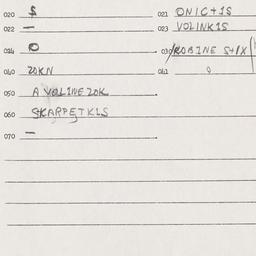 020 $ 021 ONIC+1S
022 — 023 VOLINK1S
024 O 030
040 20KN 041 0
050 A VOLINEZOK
060 SKARPETKLS
070 —